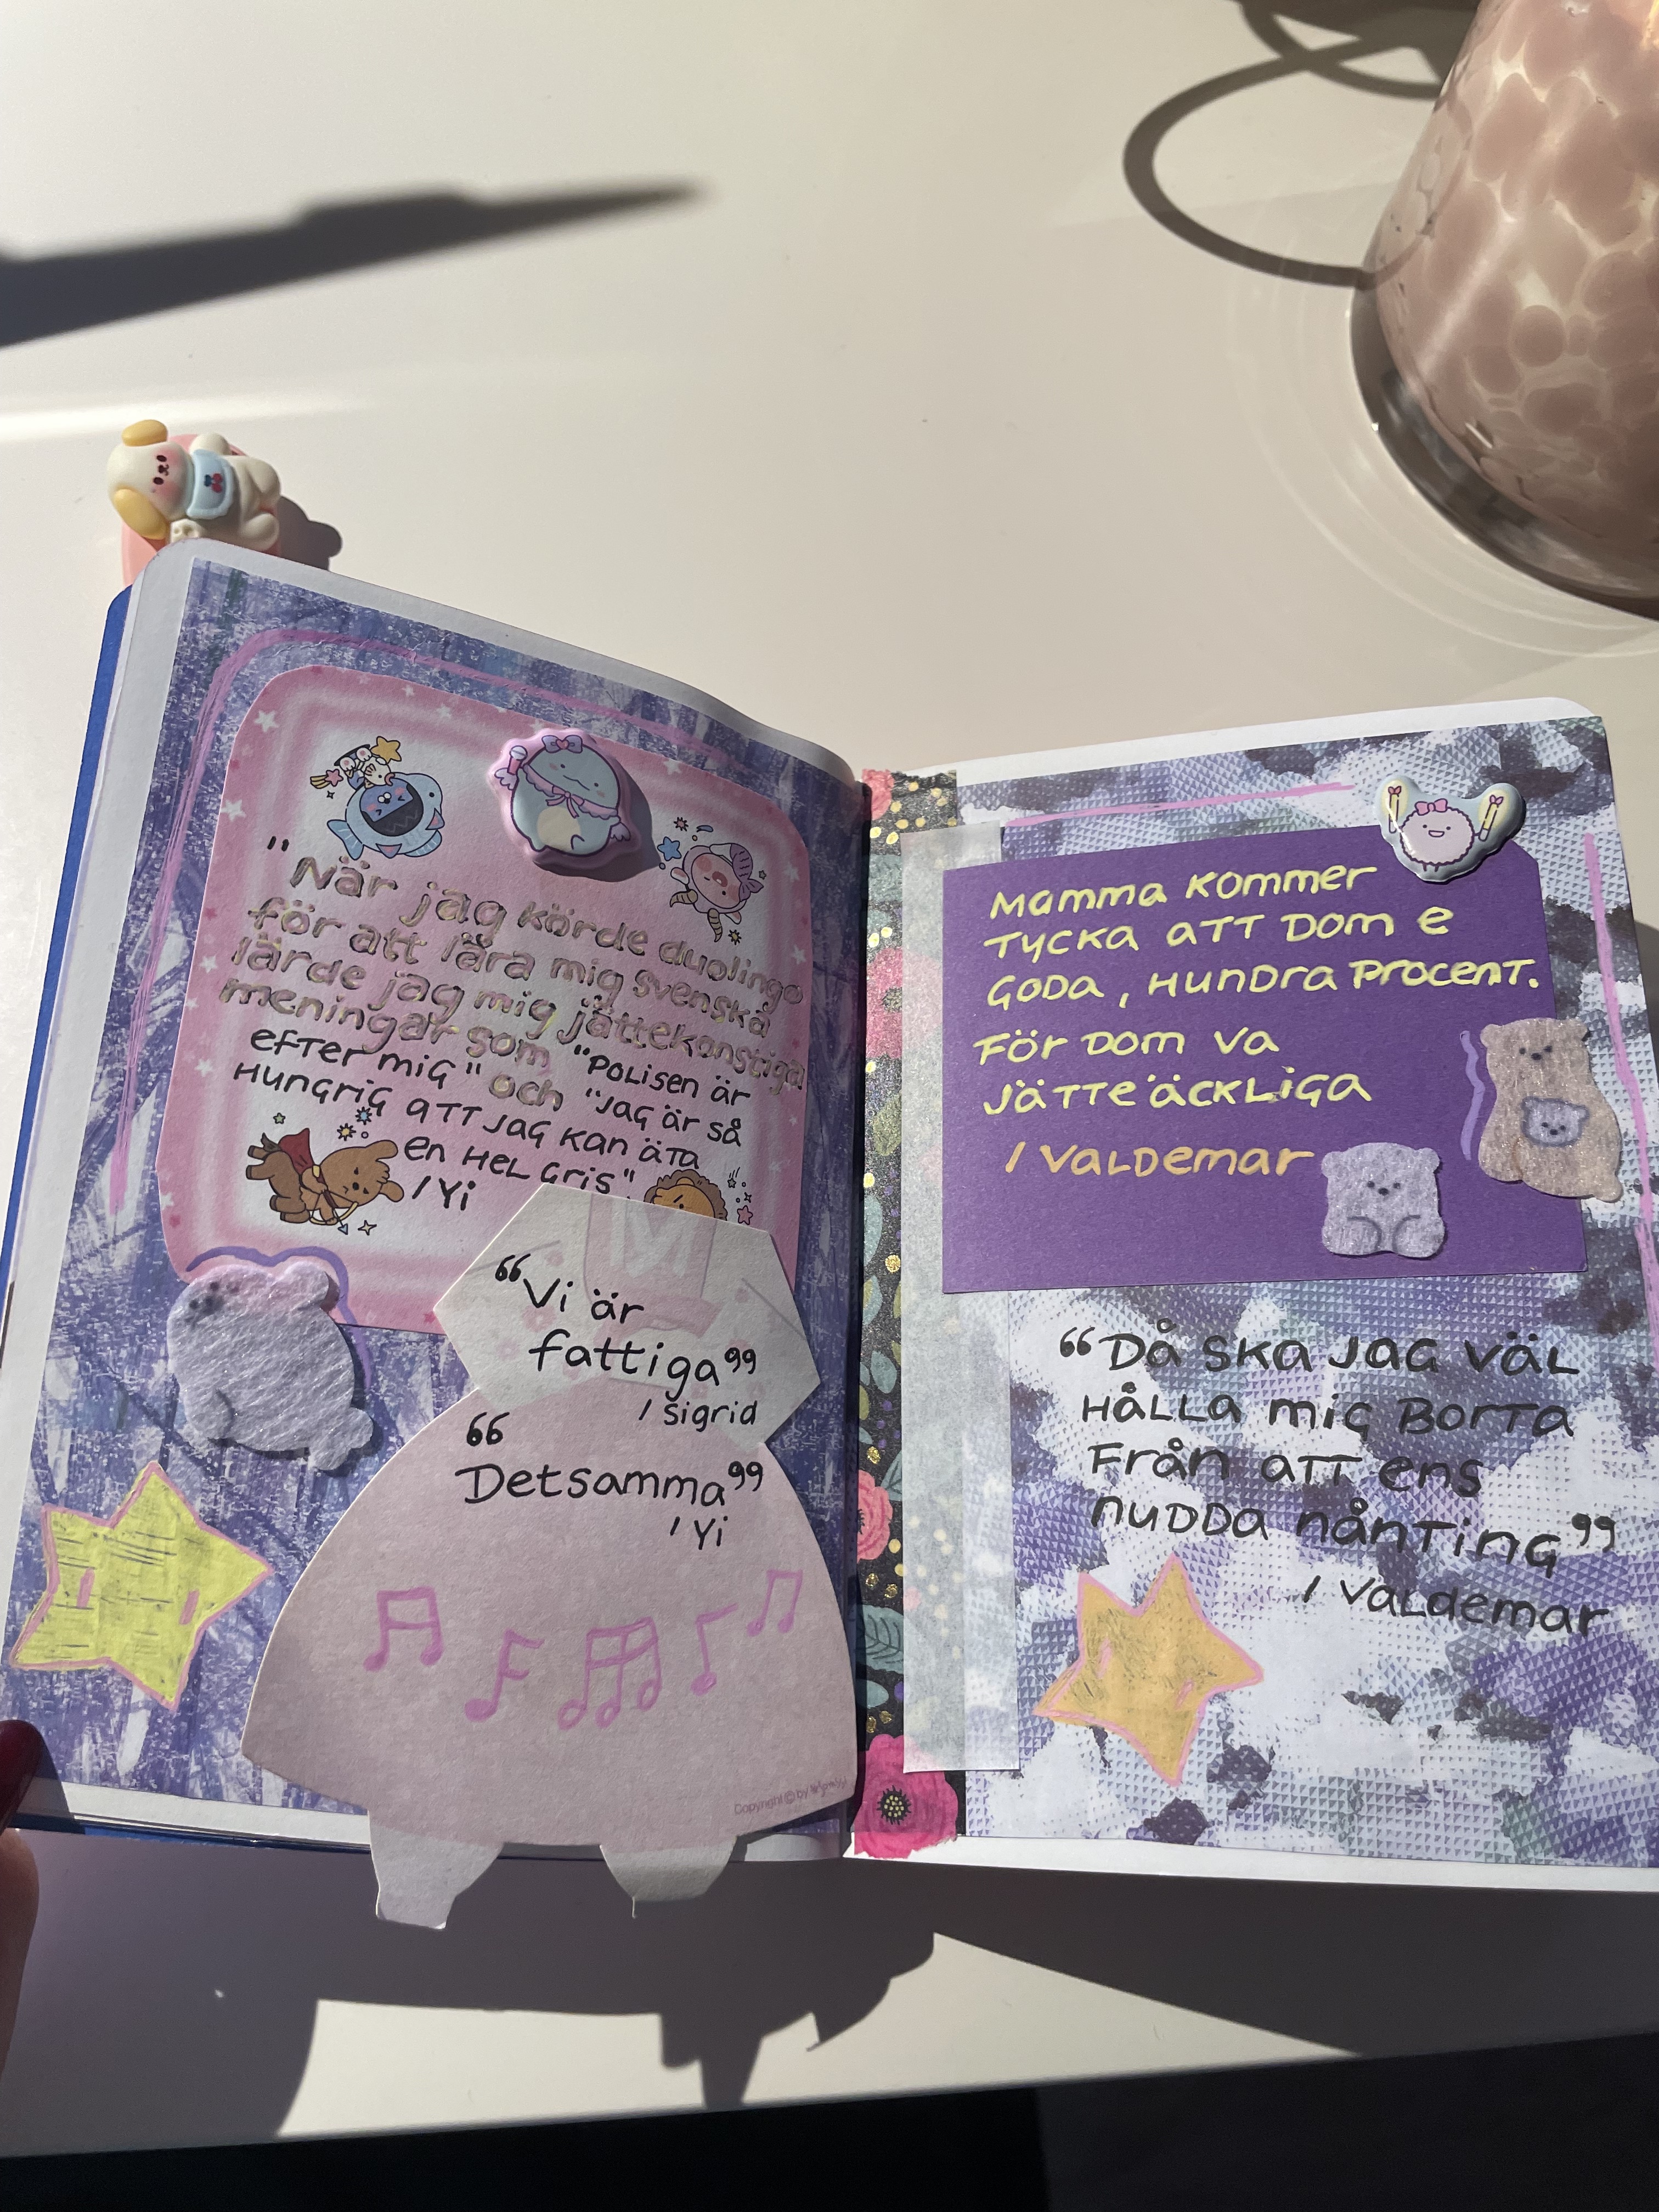 "När jag körde duolingo
för att lära mig svenska
lärde jag mig jättekonstiga
meningar som "Polisen är
efter mig" och "Jag är så
Hungrig att jag kan äta
en hel gris"
/Yi
“Vi är
fattiga”
/Sigrid
“
Detsamma”
/Yi
Copyright © by
Mamma kommer
tycka att dom e
goda, hundra procent.
För dom va
jätteäckliga
/Valdemar
“Då ska jag väl
hålla mig borta
från att ens
nudda nånting”
/Valdemar